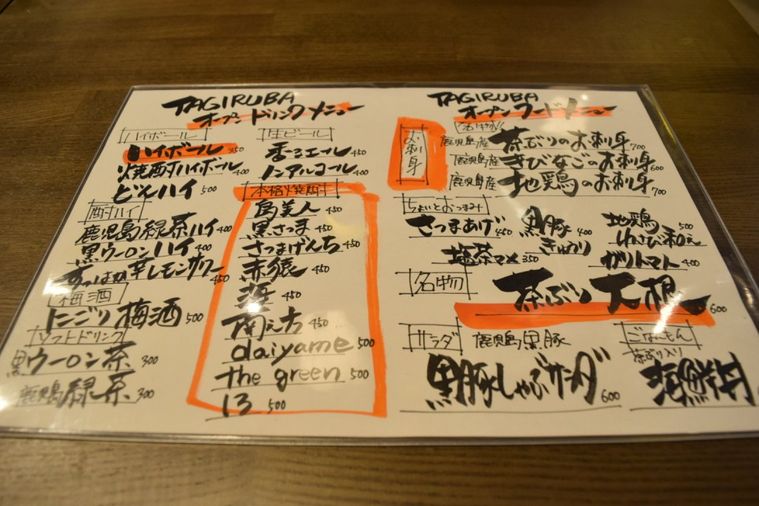 TAGIRUBA
オープンドリンクメニュー
ハイボール
ハイボール 350
焼酎ハイボール 400
どんハイ 500
酎ハイ
鹿児島緑茶ハイ 400
黒ウーロンハイ 400
すっぱか辛レモンサワー 450
梅酒
にごり梅酒 500
ソフトドリンク
黒ウーロン茶 300
鹿児島緑茶 300
生ビール
香るエール 450
ノンアルコール 400
本格焼酎
島美人 450
黒さつま 450
さつまげんち 450
赤猿 450
450
南之方 450
daiyame 500
the green 500
13 500
TAGIRUBA
オープンフードメニュー
お刺身
名物!!
鹿児島産 茶ぶりのお刺身 700
鹿児島産 きびなごのお刺身 600
鹿児島産 地鶏のお刺身 700
ちょいとおつまみ
さつまあげ 450
塩茶マメ 350
黒豚
きゅうり 400
地鶏 500
わさび和え
ガリトマト 400
名物
茶ぶり大根 600
サラダ
鹿児島黒豚
黒豚しゃぶサラダ 600
ごはんもん
茶ぶり入り
海鮮